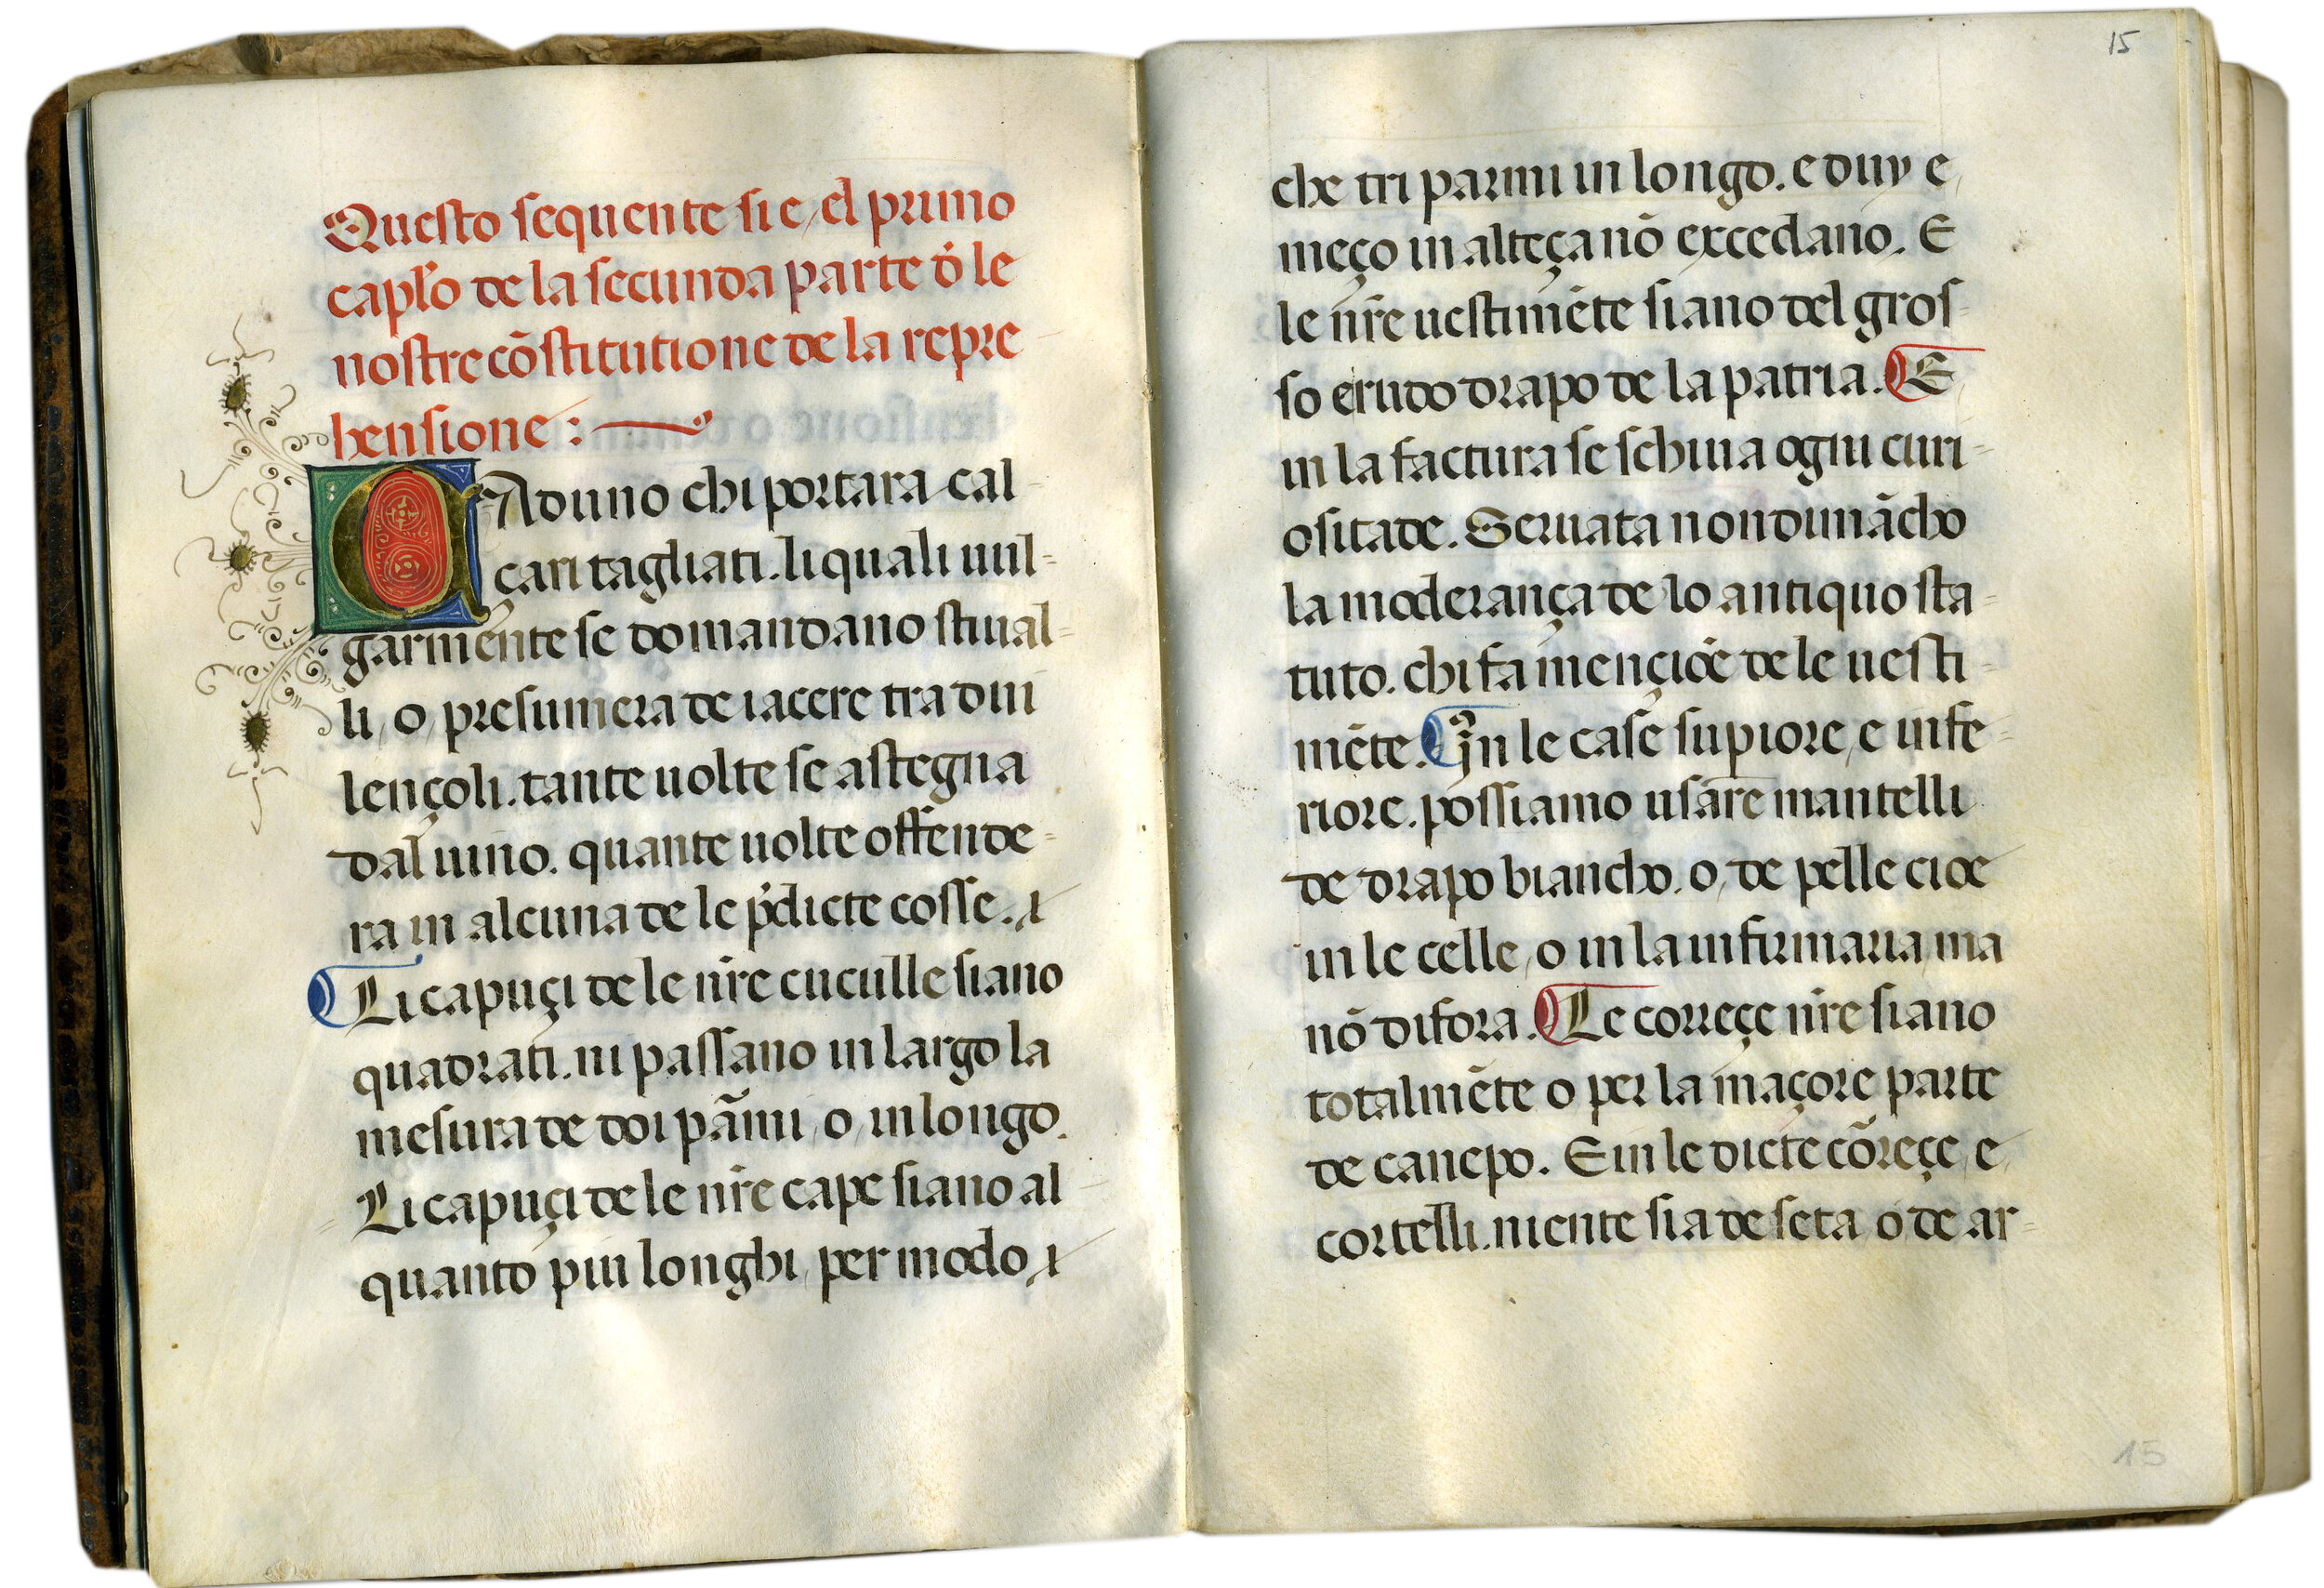 Questo sequente si e, el primo
capl'o de la secunda parte d' le
nostre cōstitutione de la repre
hensione :
CAduno chi portara cal-
çari tagliati. li quali uul-
garmente se domandano stiual-
li, o, presumera de iacere tra dui
lençoli. tante uolte se astegna
dal uino. quante uolte offende-
ra in alcuna de le p'dicte cosse.
Li capuçi de le nr̄e cuculle siano
quadrati. ni passano in largo la
mesura de doi pāmi, o, in longo.
Li capuçi de le nr̄e cape siano al-
quanto piu longhi, per modo,
15
che tri parmi in longo. e duy e,
meço in alteça nō excedano. E
le nr̄e uestimēte siano del gros-
so e rudo drapo de la patria. E
in la factura se schiua ogni curi-
ositade. Seruata nondumācho
la moderança de lo antiquo sta-
tuto. chi fa mençiōe de le uesti-
mēte. In le case supiore, e infe-
riore. possiamo usare mantelli
de drapo biancho. o, de pelle cioe
in le celle, o in la infirmaria, ma
nō difora. Le correçe nr̄e siano
totalmēte o per la maçore parte
de canepo. E in le dicte cōreçe, e,
cortelli. niente sia de seta o de ar-
15